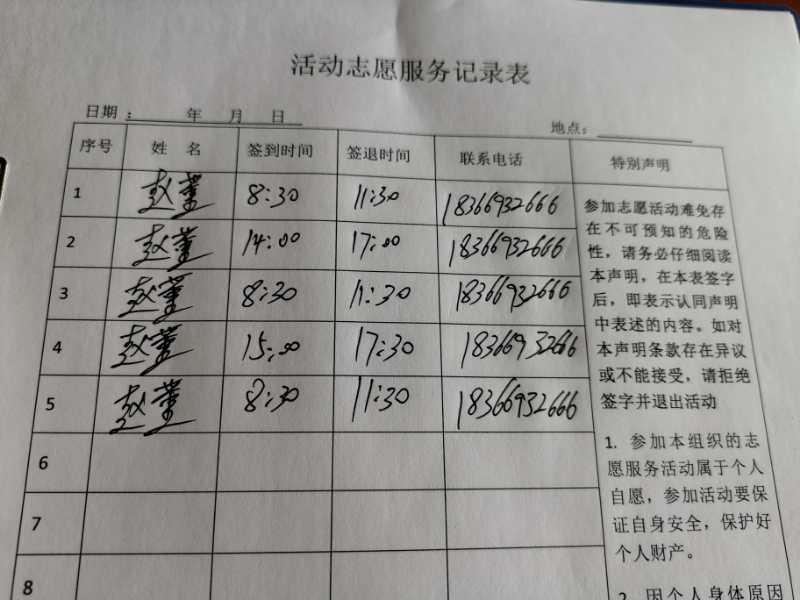 活动志愿服务记录表
日期： 年 月 日
地点：
序号 姓 名 签到时间 签退时间 联系电话 特别声明
1 赵董 8:30 11:30 18366932666
2 赵董 14:00 17:00 18366932666
3 赵董 8:30 11:30 18366932666
4 赵董 15:00 17:30 18366932666
5 赵董 8:30 11:30 18366932666
6
7
8
参加志愿活动难免存
在不可预知的危险
性，请务必仔细阅读
本声明，在本表签字
后，即表示认同声明
中表述的内容。如对
本声明条款存在异议
或不能接受，请拒绝
签字并退出活动
1. 参加本组织的志
愿服务活动属于个人
自愿，参加活动要保
证自身安全，保护好
个人财产。
2. 因个人身体原因